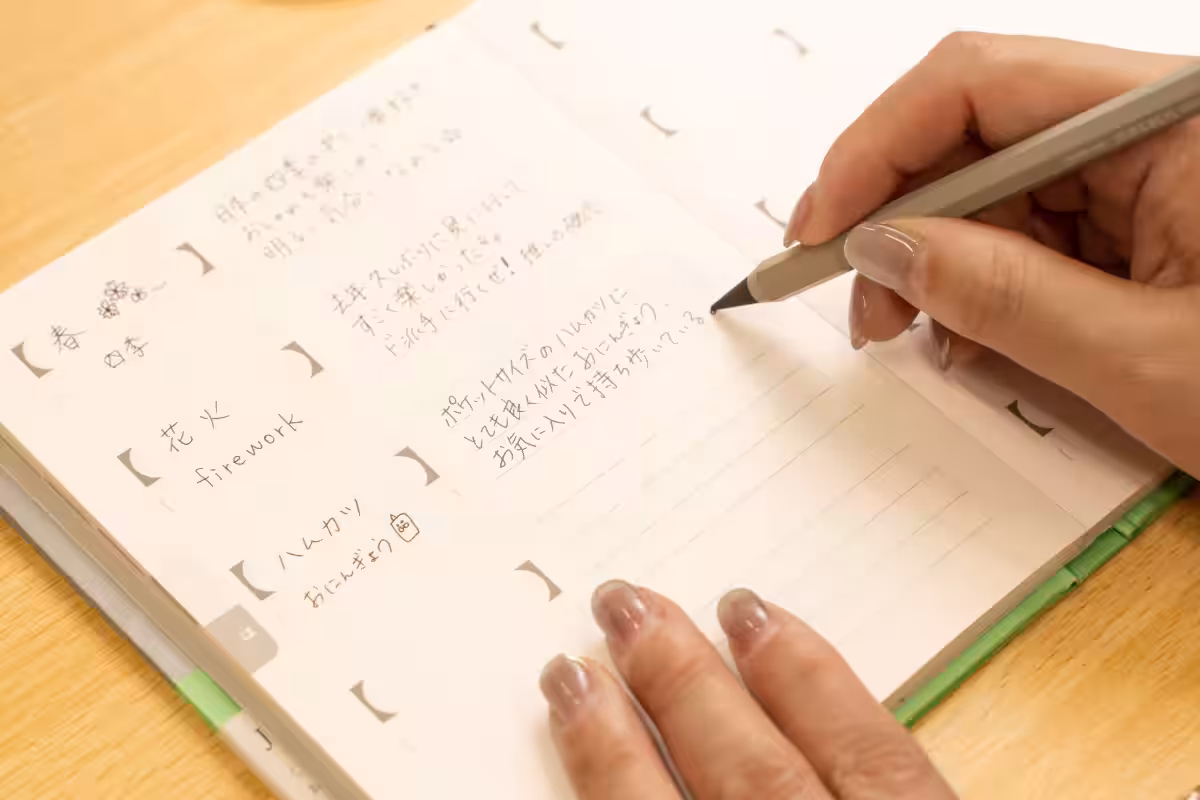 春
四季
日本の四季の中で一番好き
明るい
花火
firework
去年久しぶりに見に行って
すごく楽しかったき。
ド派手に行くぜ!推しの硬化
ハムカツ
おにんぎょう
ポケットサイズのハムカツに
とても良く似たおにんぎょう。
お気に入りで持ち歩いている
J